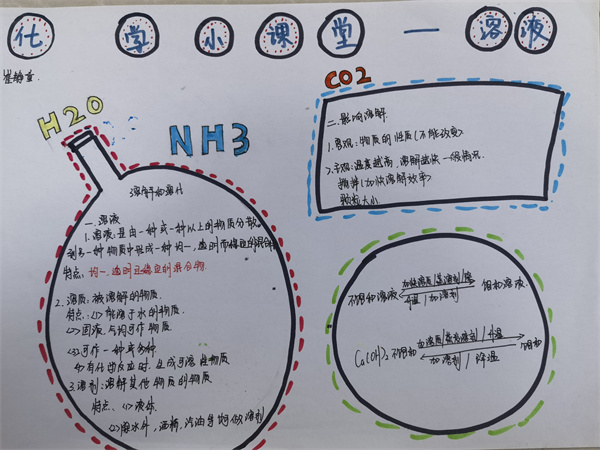 化学小课堂—溶液
H2O
NH3
CO2
溶解和溶什
一.溶液
1.溶液:是由一种或一种以上的物质分散
到另一种物质中形成一种均一,透明而稳定的混合物
特点:均一.透明且稳定的混合物.
2.溶质:被溶解的物质.
特点:(1)能溶于水的物质.
(2)固液气均可作物质
(3)可作一种或多种
(4)有化齿反应时.生成可溶性物质
3.溶剂:溶解其他物质的物质.
特点:(1)液体.
(2)除水外,酒精,汽油等够做溶剂
二.影响溶解.
1.客观:物质的性质(不能改变)
2.主观:温度越高,溶解越快 一般情况.
搅拌(加快溶解效率)
颗粒大小.
不饱和溶液
加溶质/蒸溶剂/降
升温/加溶剂
饱和溶液.
Ca(OH)2 不饱和
加溶质/蒸发溶剂/升温
加溶剂/降温
饱和